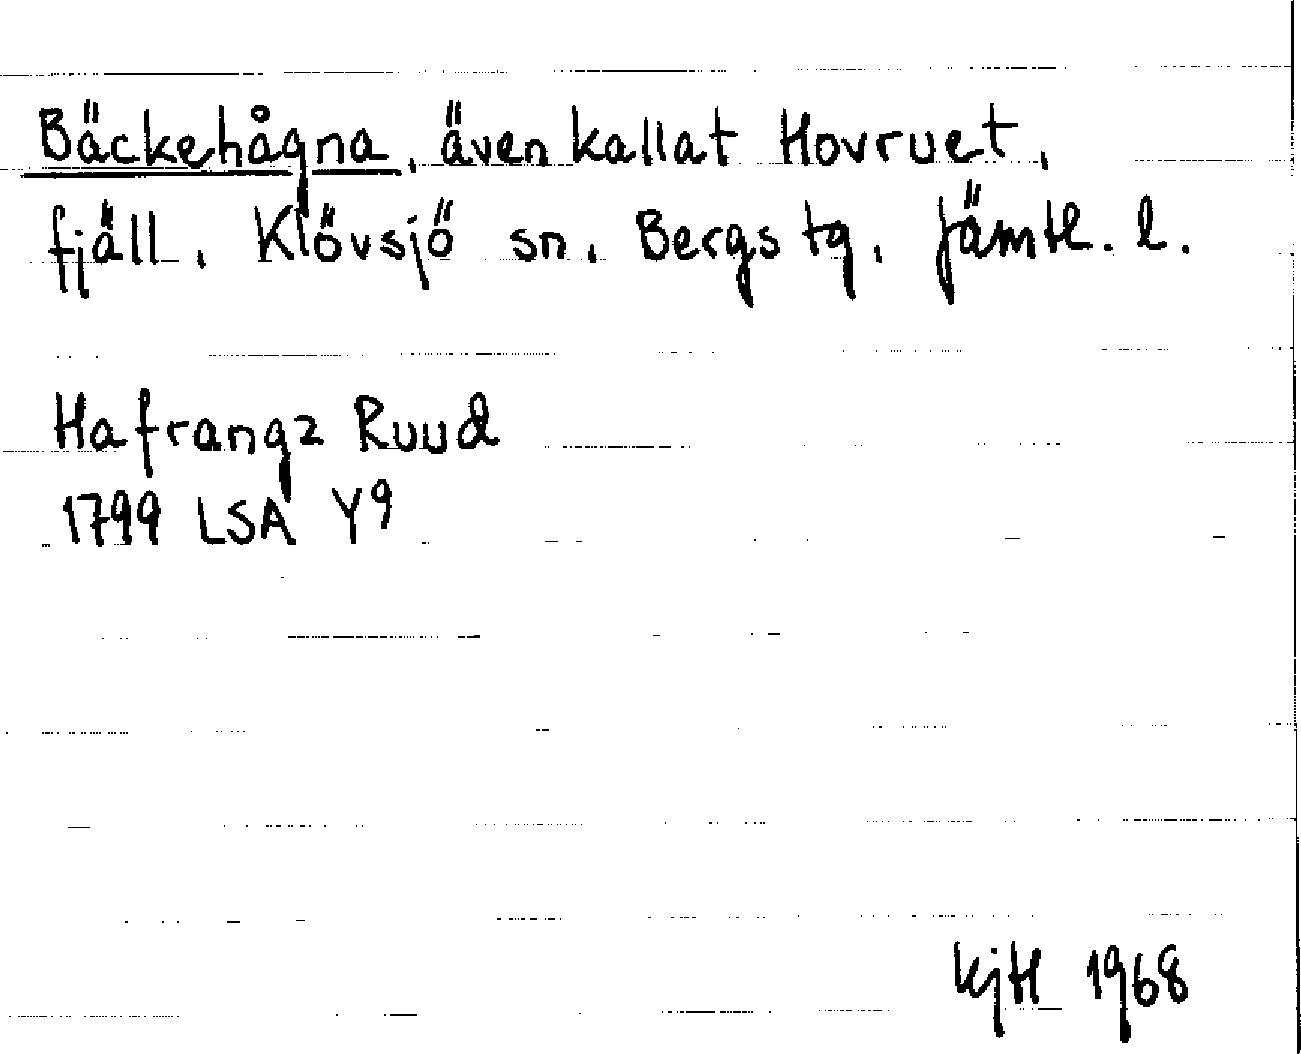 Bäckehågna, även kallat Hovruet,
fjäll, Klövsjö sn, Bergs tg, Jämtl. l.
Hafrangz Ruud
1799 LSA Y9
KjH 1968